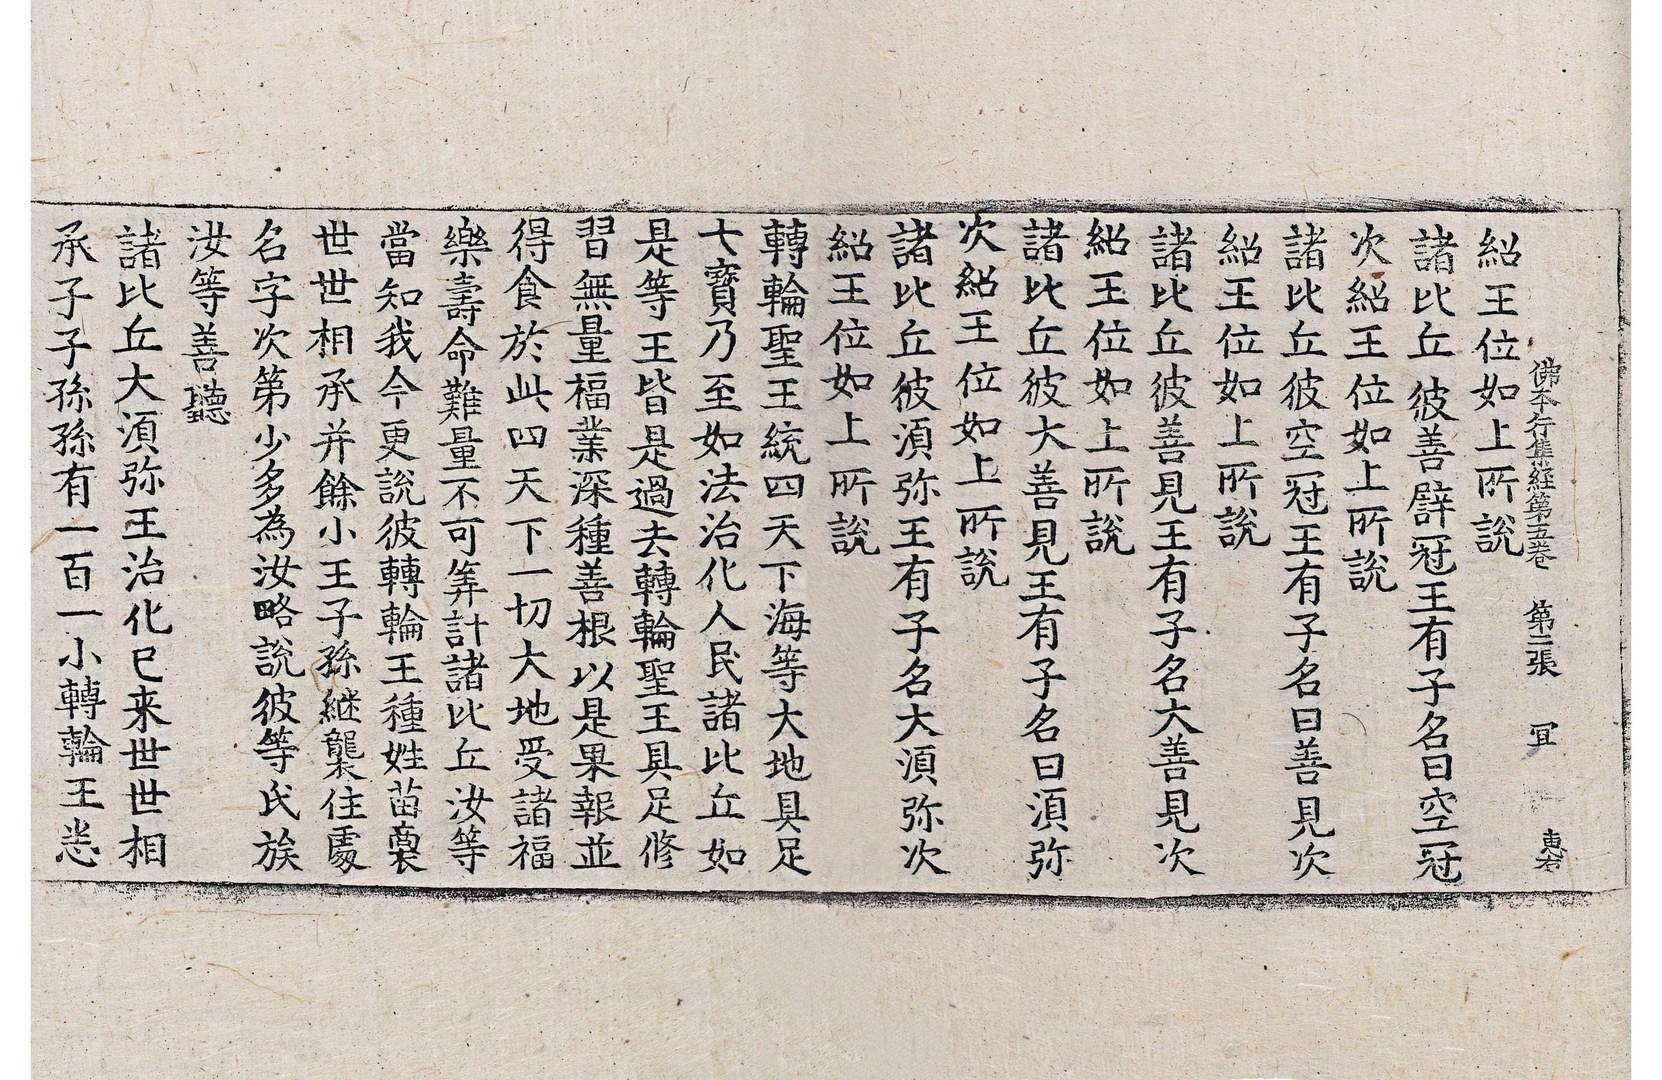 佛本行集經第五卷 第二張 冝 惠右
紹王位如上所說
諸比丘彼善辟冠王有子名曰空冠
次紹王位如上所說
諸比丘彼空冠王有子名曰善見次
紹王位如上所說
諸比丘彼善見王有子名大善見次
紹王位如上所說
諸比丘彼大善見王有子名曰湏弥
次紹王位如上所說
諸比丘彼湏弥王有子名大湏弥次
紹王位如上所說
轉輪聖王統四天下海等大地具足
七寶乃至如法治化人民諸比丘如
是等王皆是過去轉輪聖王具足修
習無量福業深種善根以是果報並
得食於此四天下一切大地受諸福
樂壽命難量不可筭計諸比丘汝等
當知我今更說彼轉輪王種姓苗裔
世世相承并餘小王子孫継襲住處
名字次第少多為汝略說彼等氏族
汝等善聽
諸比丘大湏弥王治化已来世世相
承子子孫孫有一百一小轉輪王悉